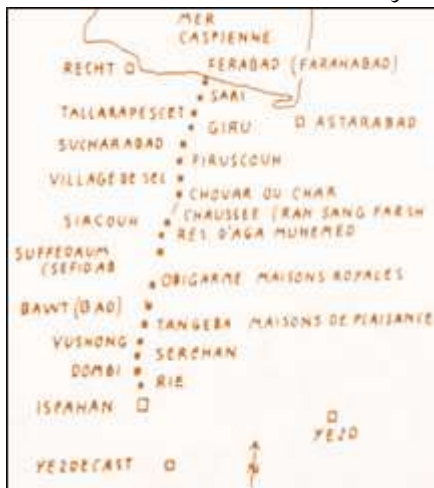 MER
CASPIENNE
RECHT
FERABAD (FARAHABAD)
SARI
TALLARAPESCET
GIRU
ASTARABAD
SUCHARABAD
PIRUSCOUH
VILLAGE DE SEL
CHOUAR OU CHAR
CHAUSSEE (RAH SANG FARSH
SIRCOUH
RES D'AGA MUHEMED
SUFFEDAUM
(SEFIDAB
OBIGARME MAISONS ROYALES
BAWT (BAD)
TANGEBA MAISONS DE PLAISANCE
VUSHONG
SEREHAN
DOMBI
RIE
ISPAHAN
YEZD
YEZDECAST
N